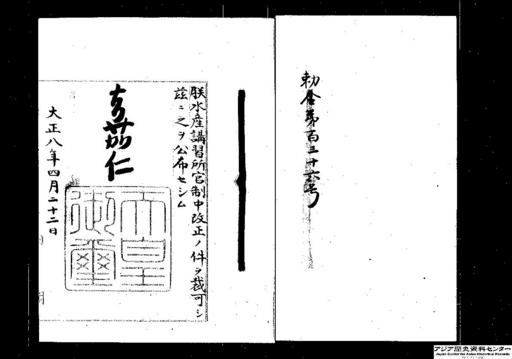 勅令第百三十六号
朕水産講習所官制中改正ノ件ヲ裁可シ
茲ニ之ヲ公布セシム
嘉仁
天皇
御璽
大正八年四月二十二日
アジア歴史資料センター
Japan Center for Asian Historical Records